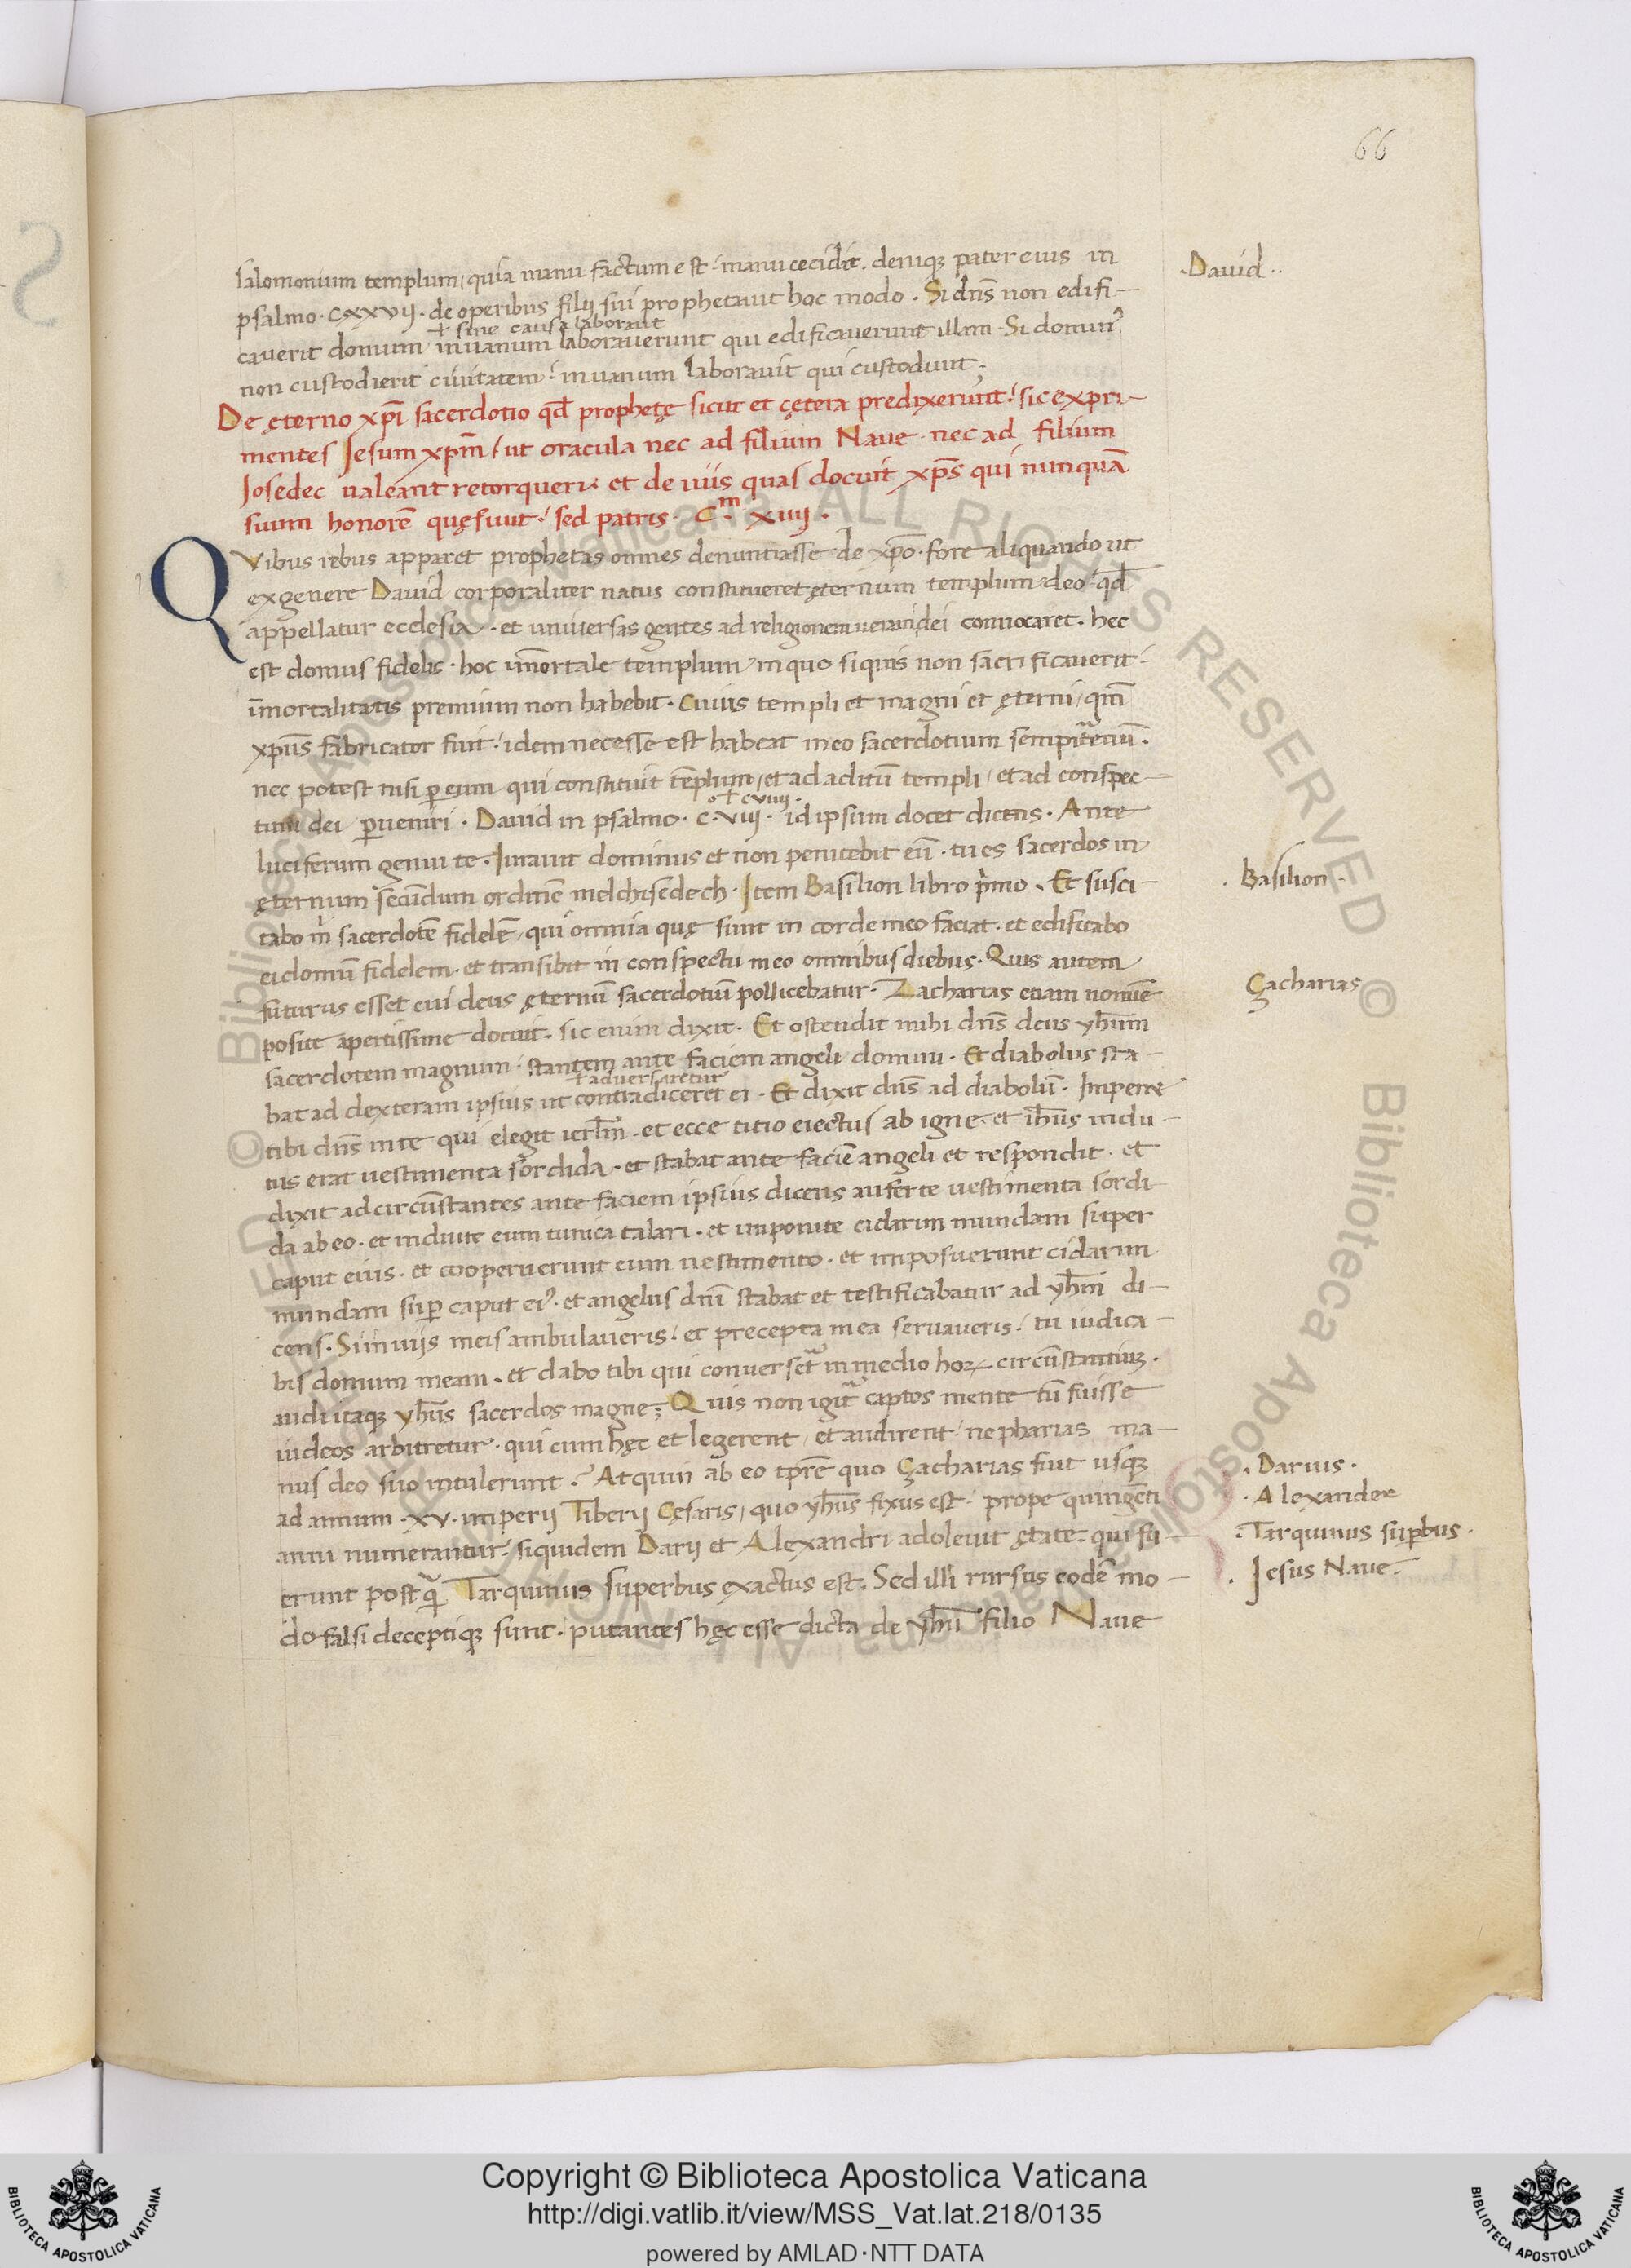 66
salomonium templum, quia manu factum est: manu cecidit. deniqꝫ pater eius in
psalmo · cxxvij · de operibus filij sui prophetavit hoc modo. Si dn̄s non edifi-
ł sine causa laboravit
caverit domum invanum laboraverunt qui edificaverunt illam. Si dominꝰ
non custodierit civitatem: invanum laboravit qui custodivit;
David
De ęterno xp̄i sacerdotio qđ prophetę sicut et cętera predixerunt: sic expri-
mentes Jesum xp̄m, ut oracula nec ad filium Nave · nec ad filium
Josedec valeant retorqueri. et de viis quas docuit xp̄s qui nunquā
suum honorē quęsivit: sed patris. C.m xiiij.
QVibus rebus apparet prophetas omnes denuntiasse de xp̄o · fore aliquando ut
ex genere David corporaliter natus constitueret ęternum templum deo: qđ
appellatur ecclesia · et universas gentes ad religionem veram dei convocaret. hec
est domus fidelis · hoc īmortale templum, in quo siquis non sacrificaverit:
īmortalitatis premium non habebit. Cuius templi et magni et ęterni, qm̄
xp̄us fabricator fuit: idem necesse est habeat in eo sacerdotium sempiternū.
nec potest nisi ꝑ eum qui constituit tēplum, et ad aditū templi, et ad conspec-
ł cviiij.
tum dei ꝑveniri. David in psalmo · cviij · id ipsum docet dicens. Ante
luciferum genui te. Juravit dominus et non penitebit eū · tu es sacerdos in
ęternum secūdum ordinē melchisedech. Item Basilion libro p̄mo. Et susci-
Basilion.
tabo m̄ sacerdotē fidelē, qui omnia quę sunt in corde meo faciat. et edificabo
ei domū fidelem. et transibit in conspectu meo omnibus diebus. Quis autem
futurus esset cui deus ęternū sacerdotiū pollicebatur. Zacharias etiam nomīe
Çacharias
posito apertissime docuit. sic enim dixit. Et ostendit mihi dn̄s deus yħum
sacerdotem magnum · stantem ante faciem angeli domini. Et diabolus sta-
ł adversaretur
bat ad dexteram ipsius ut contradiceret ei. Et dixit dn̄s ad diabolū. Imperet
tibi dn̄s in te qui elegit ierl̄m. et ecce titio eiectus ab igne. et iħus indu-
tus erat vestimenta sordida. et stabat ante faciē angeli et respondit. et
dixit ad circūstantes ante faciem ipsius dicens auferte vestimenta sordi-
da ab eo. et induite eum tunica talari. et imponite cidarim mundam super
caput eius. et cooperuerunt eum vestimento. et imposuerunt cidarim
mundam suꝑ caput eiꝰ. et angelus dn̄i stabat et testificabatur ad yħm di-
cens. Si in viis meis ambulaveris: et precepta mea servaveris: tu iudica-
bis domum meam. et dabo tibi qui conversetr in medio hoꝝ circūstantiuꝫ.
audi itaqꝫ yħus sacerdos magne; Quis non igitr captos mente tū fuisse
iudeos arbitretur. qui cum hęc et legerent, et audirent: nepharias ma-
nus deo suo intulerunt? Atquin ab eo tp̄re quo Çacharias fuit usqꝫ
ad annum · xv · imperij Tiberij Cęsaris, quo yħus fixus est: prope quingēti
anni numerantur. siquidem Darij et Alexandri adolevit ętate. qui fu-
erunt postq̄ Tarquinius superbus exactus est. Sed illi rursus eodē mo-
do falsi deceptiqꝫ sunt. putantes hęc esse dicta de yħu filio Nave
. Darius.
. Alexander
. Tarquinius suꝑbus.
. Jesus Nave.
Copyright © Biblioteca Apostolica Vaticana
http://digi.vatlib.it/view/MSS_Vat.lat.218/0135
powered by AMLAD·NTT DATA
BIBLIOTECA APOSTOLICA VATICANA
BIBLIOTECA APOSTOLICA VATICANA